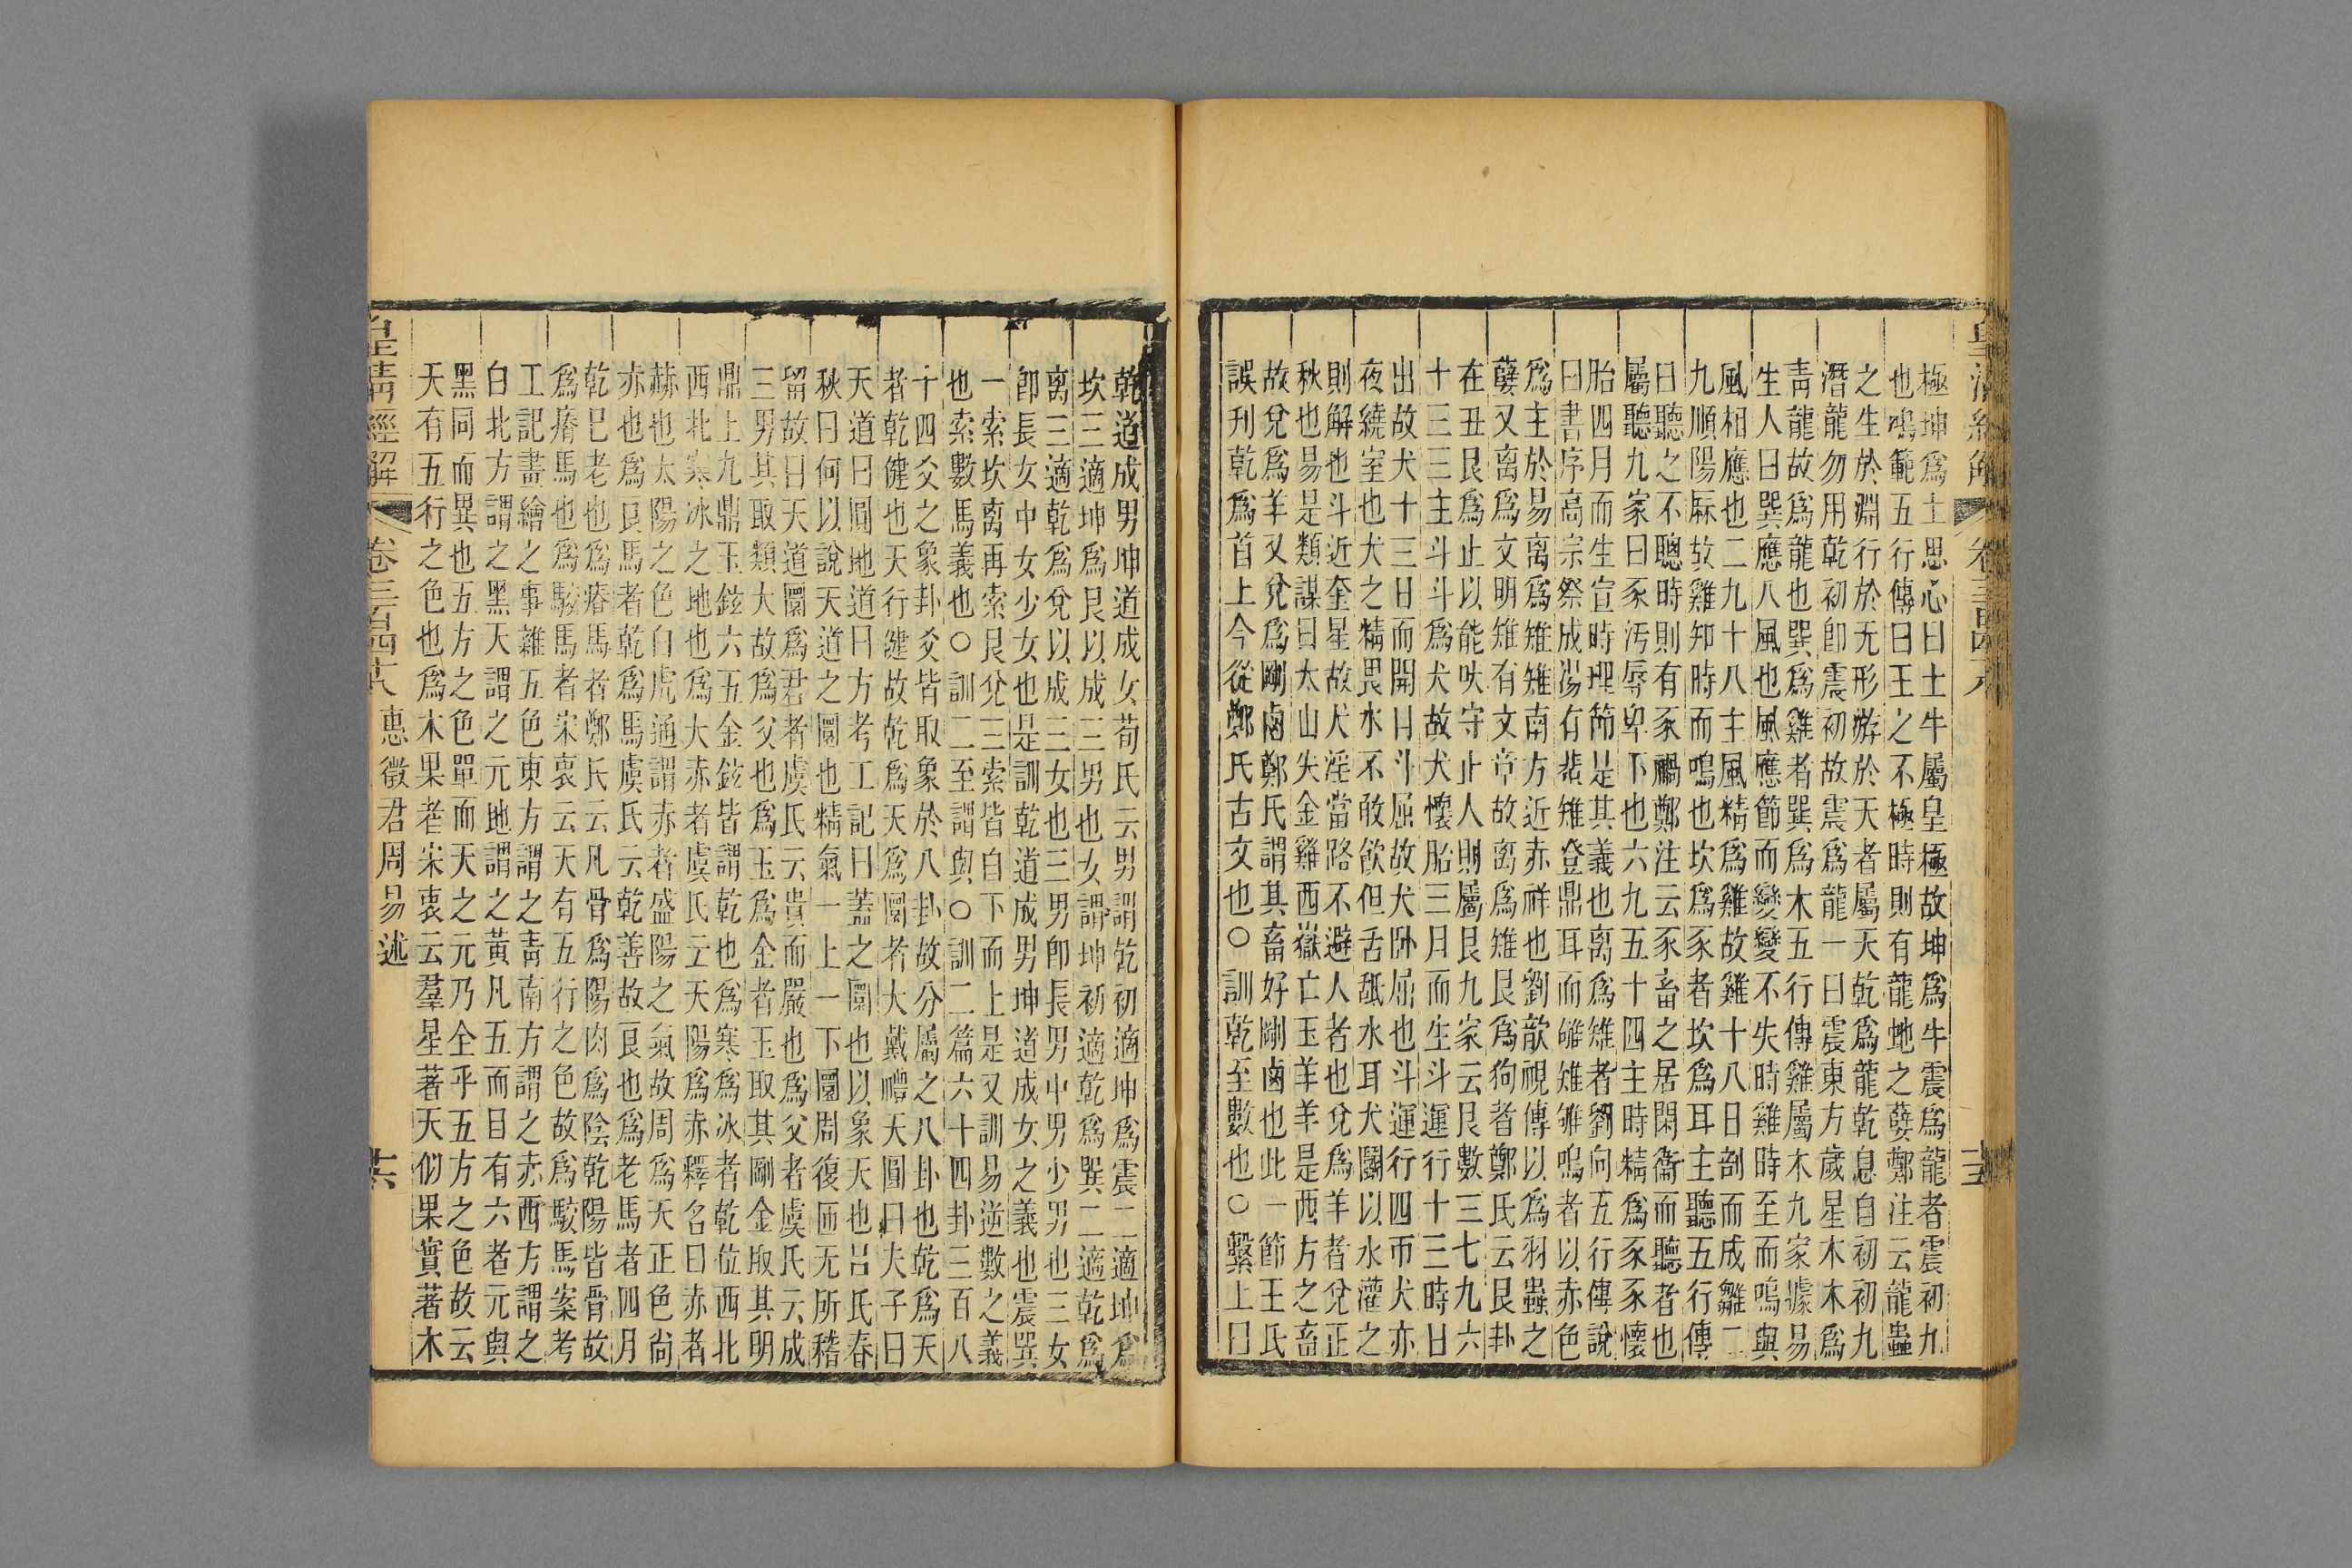 極坤爲土思心曰土牛屬皇極故坤爲牛震爲龍者震初九
也鴻範五行傳曰王之不極時則有龍虵之孽鄭注云龍蟲
之生於淵行於无形游於天者屬天乾爲龍乾息自初初九
潛龍勿用乾初卽震初故震爲龍一曰震東方歲星木木爲
靑龍故爲龍也巽爲雞者巽爲木五行傳雞屬木九家據易
生人曰巽應八風也風應節而變變不失時雞時至而鳴與
風相應也二九十八主風精爲雞故雞十八日剖而成雛二
九順陽厤故雞知時而鳴也坎爲豕者坎爲耳主聽五行傳
曰聽之不聰時則有豕禍鄭注云豕畜之居閑衞而聽者也
屬聽九家曰豕汚辱卑下也六九五十四主時精爲豕豕懷
胎四月而生宣時理節是其義也离爲雉者劉向五行傳說
曰書序高宗祭成湯有蜚雉登鼎耳而雊雉雊鳴者以赤色
爲主於易离爲雉雉南方近赤祥也劉歆視傳以爲羽蟲之
孽又离爲文明雉有文章故离爲雉艮爲狗者鄭氏云艮卦
在丑艮爲止以能吠守止人則屬艮九家云艮數三七九六
十三三主斗斗爲犬故犬懷胎三月而生斗運行十三時日
出故犬十三日而開目斗屈故犬卧屈也斗運行四帀犬亦
夜繞室也犬之精畏水不敢飲但舌舐水耳犬鬭以水灌之
則解也斗近奎星故犬淫當路不避人者也兌爲羊者兌正
秋也易是類謀曰太山失金雞西嶽亡玉羊羊是西方之畜
故兌爲羊又兌爲剛鹵鄭氏謂其畜好剛鹵也此一節王氏
誤刊乾爲首上今從鄭氏古文也○訓乾至數也○繫上曰
乾道成男坤道成女荀氏云男謂乾初適坤爲震二適坤爲
坎三適坤爲艮以成三男也女謂坤初適乾爲巽二適乾爲
离三適乾爲兌以成三女也三男卽長男中男少男也三女
卽長女中女少女也是訓乾道成男坤道成女之義也震巽
一索坎离再索艮兌三索皆自下而上是又訓易逆數之義
也索數馬義也○訓二至謂與○訓二篇六十四卦三百八
十四爻之象卦爻皆取象於八卦故分屬之八卦也乾爲天
者乾健也天行健故乾爲天爲圜者大戴禮天圓曰夫子曰
天道曰圓地道曰方考工記曰蓋之圜也以象天也呂氏春
秋曰何以說天道之圜也精氣一上一下圜周復匝无所稽
留故曰天道圜爲君者虞氏云貴而嚴也爲父者虞氏云成
三男其取類大故爲父也爲玉爲金者玉取其剛金取其明
鼎上九鼎玉鉉六五金鉉皆謂乾也爲寒爲冰者乾位西北
西北寒冰之地也爲大赤者虞氏云天陽爲赤釋名曰赤者
赫也太陽之色白虎通謂赤者盛陽之氣故周爲天正色尙
赤也爲良馬者乾爲馬虞氏云乾善故良也爲老馬者四月
乾巳老也爲瘠馬者鄭氏云凡骨爲陽肉爲陰乾陽皆骨故
爲瘠馬也爲駁馬者宋衷云天有五行之色故爲駁馬案考
工記畫繪之事雜五色東方謂之靑南方謂之赤西方謂之
白北方謂之黑天謂之元地謂之黃凡五而目有六者元與
黑同而異也五方之色單而天之元乃全乎五方之色故云
天有五行之色也爲木果者宋衷云羣星著天似果實著木
皇清經解
卷三百四十八
惠徵君周易述
十六